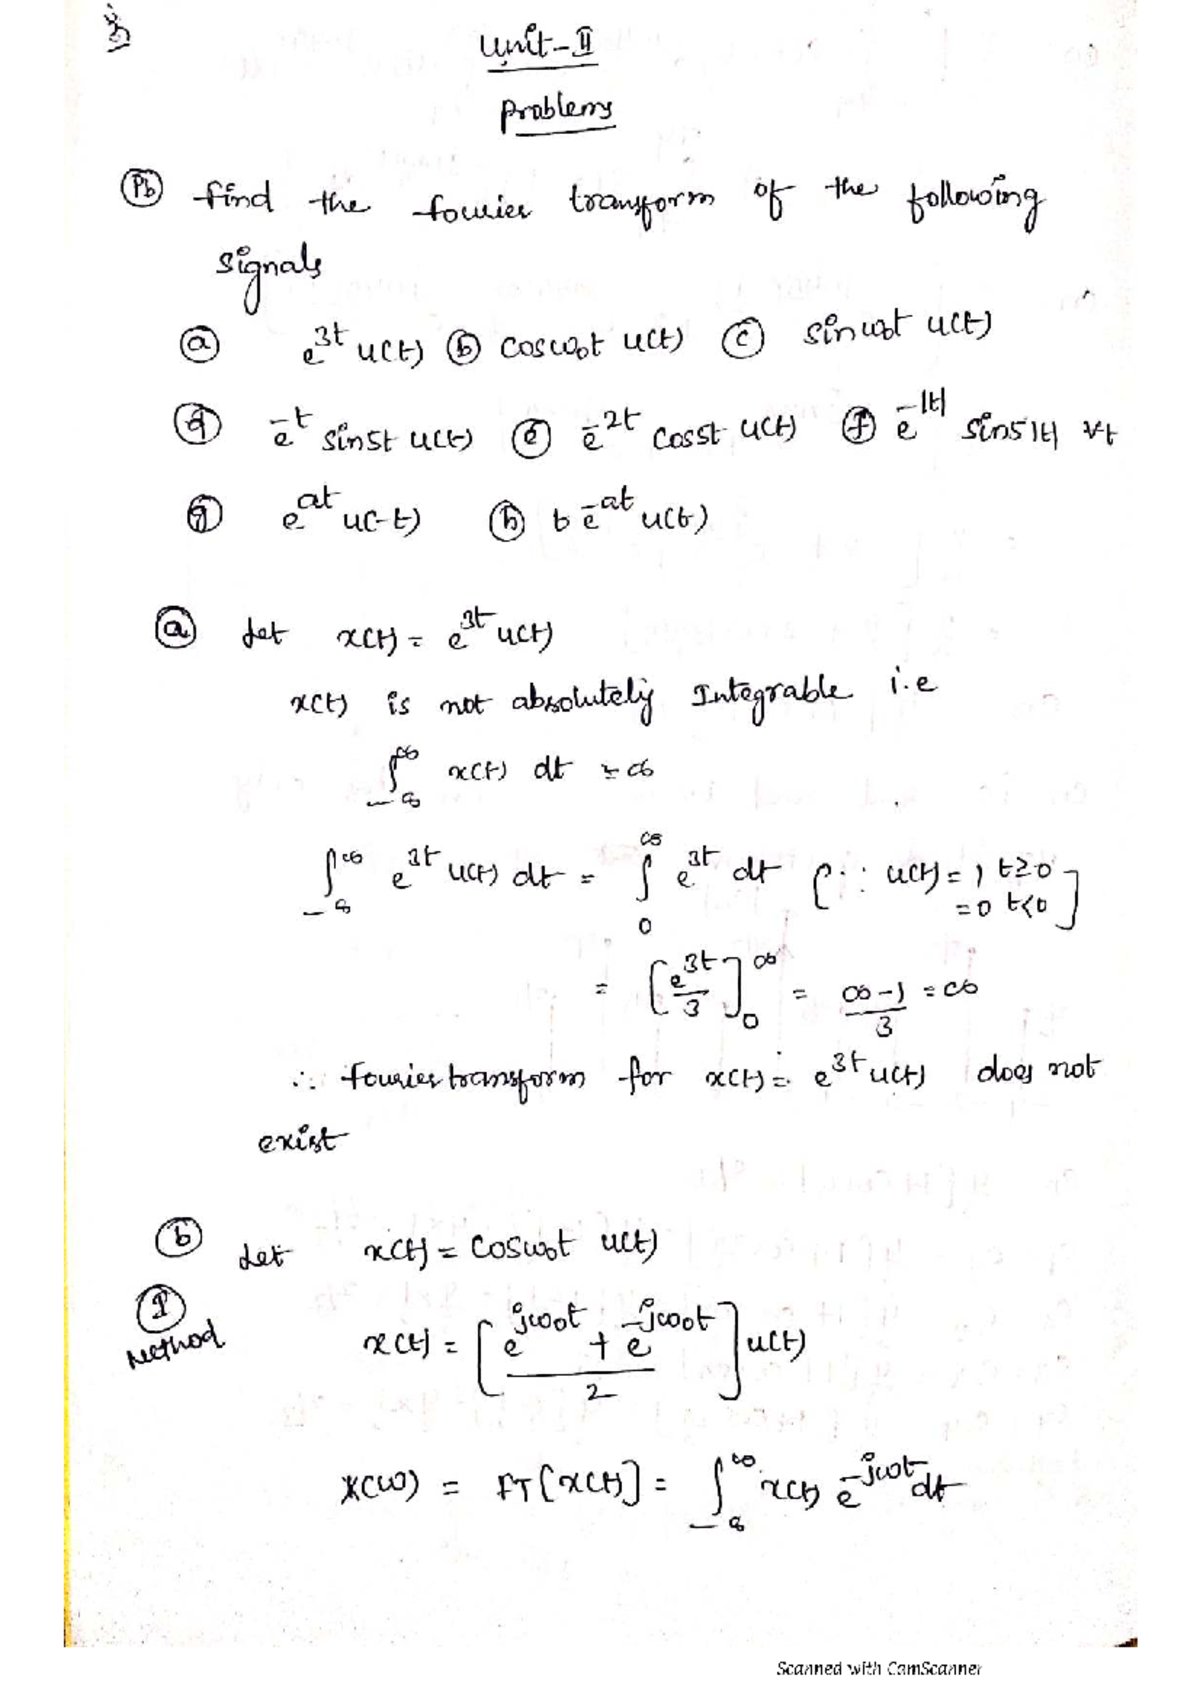 Unit-II
Problems
(Pb) find the fourier transform of the following
signals
(a) e^{3t} u(t) (b) cosw₀t u(t) (c) sinw₀t u(t)
(d) e^{-t} sin5t u(t) (e) e^{-2t} cos5t u(t) (f) e^{-|t|} sin5|t| ∀t
(g) e^{at} u(-t) (h) b e^{-at} u(t)
(a) Let x(t) = e^{3t} u(t)
x(t) is not absolutely Integrable i.e
∫_{-∞}^{∞} x(t) dt = ∞
∫_{-∞}^{∞} e^{3t} u(t) dt = ∫_{0}^{∞} e^{3t} dt [∵ u(t) = 1 t≥0
= 0 t<0]
= [e^{3t}/3]_{0}^{∞} = (∞-1)/3 = ∞
∴ fourier transform for x(t) = e^{3t} u(t) does not
exist
(b) Let x(t) = cosw₀t u(t)
(1)
Method
x(t) = [(e^{jw₀t} + e^{-jw₀t})/2] u(t)
X(w) = FT[x(t)] = ∫_{-∞}^{∞} x(t) e^{-jwt} dt
Scanned with CamScanner